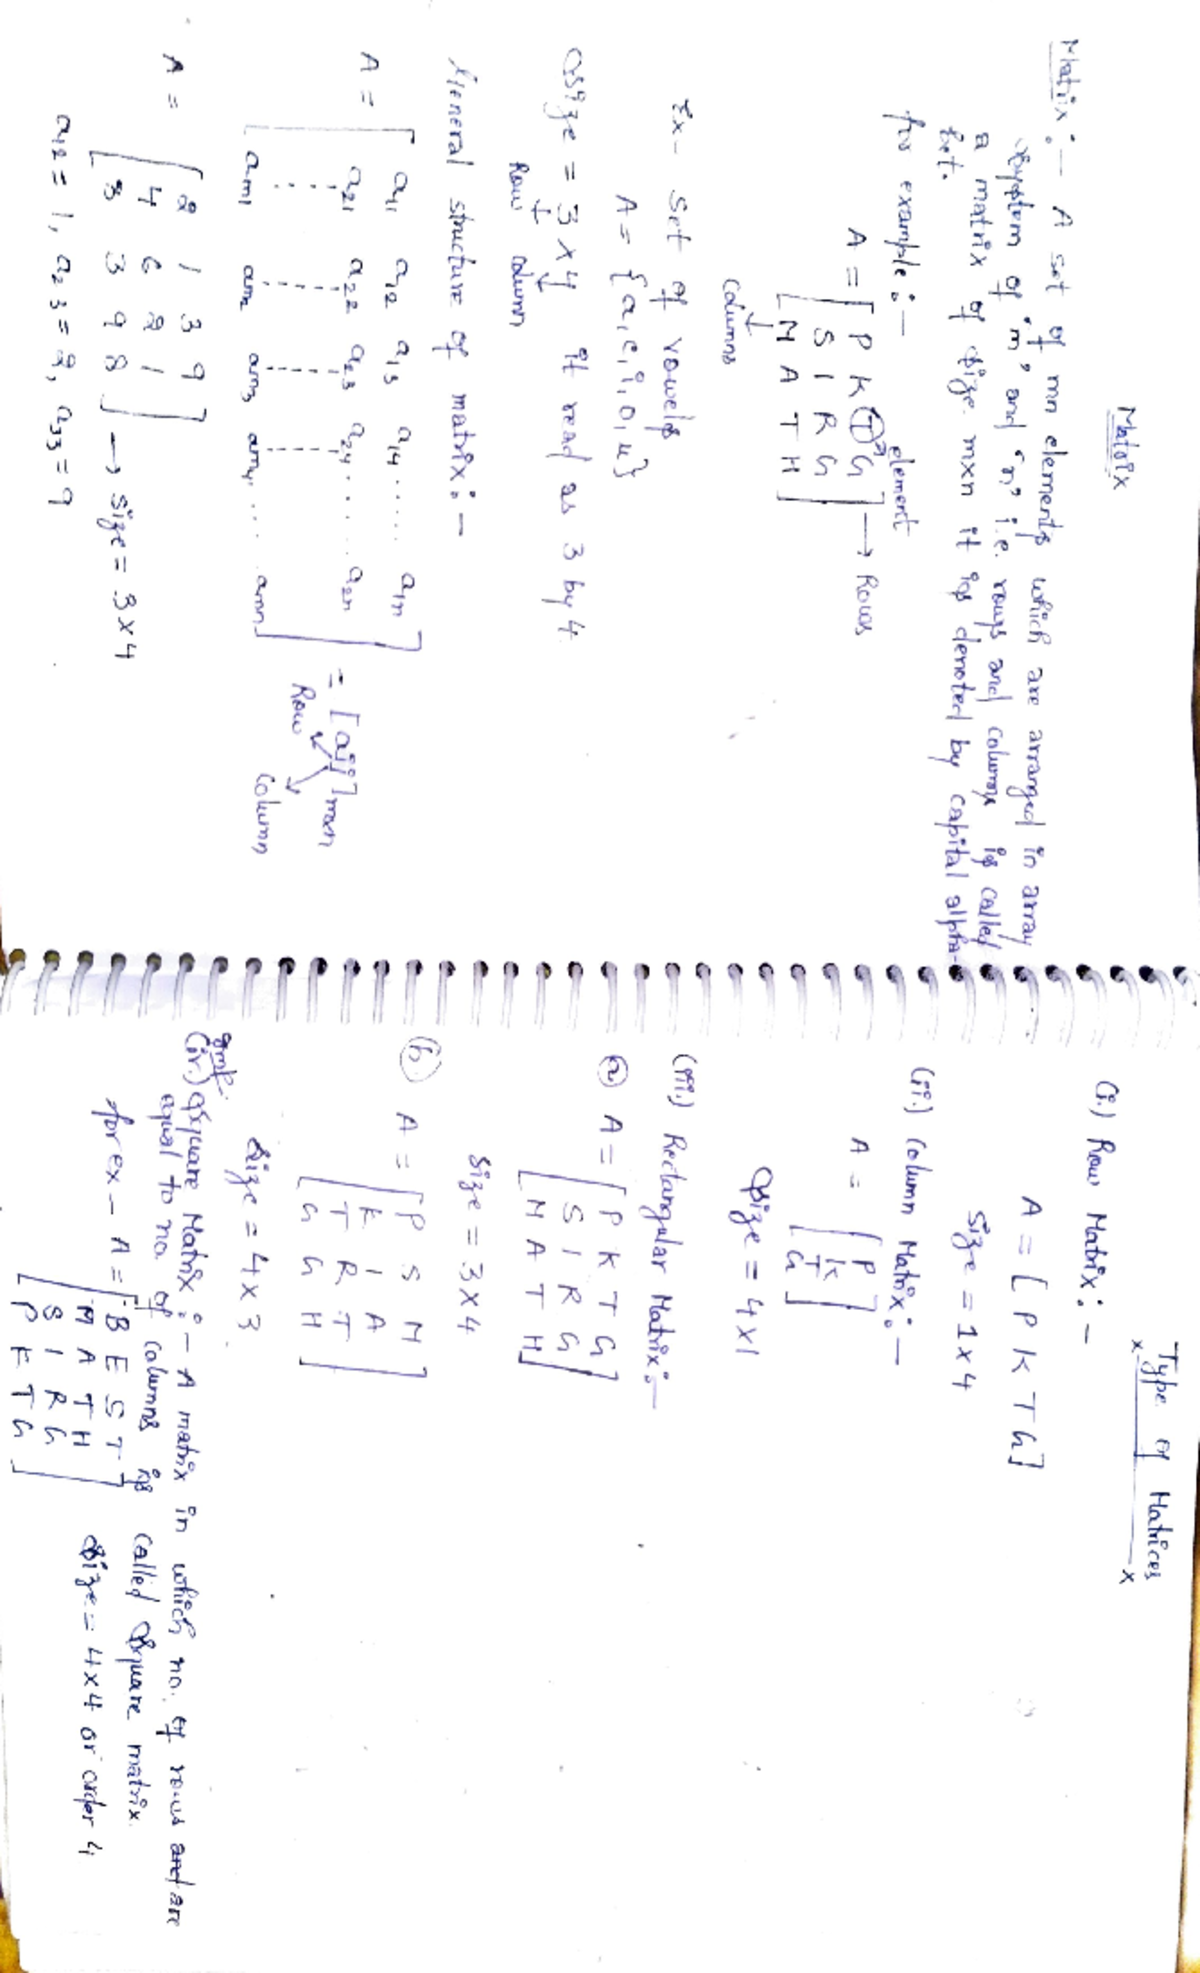 Matrix
Matrix :- A set of mn elements which are arranged in array
system of 'm' and 'n' i.e. rows and columns is called
a matrix of size mxn it is denoted by capital alpha-
bet.
for example :-
element
A = [ P K T G ] → Rows
S I R G
M A T H
↓
Columns
Ex - Set of vowels
A = {a, e, i, o, u}
Size = 3 x 4 it read as 3 by 4.
↓ ↓
Row Column
General structure of matrix :-
A = [ a11 a12 a13 a14 ...... a1n ]
a21 a22 a23 a24 ...... a2n
am1 am2 am3 am4 ..... amn
= [aij]mxn
Row Column
A = [ 2 1 3 9 ]
4 6 2 1
3 3 9 8 → Size = 3 x 4
a12 = 1, a23 = 2, a33 = 9
Type of Matrices
x x
(i.) Row Matrix :-
A = [ P K T G ]
Size = 1 x 4
(ii.) Column Matrix :-
A = [ P
K
T
G ]
Size = 4 x 1
(iii.) Rectangular Matrix :-
(a) A = [ P K T G ]
S I R G
M A T H
Size = 3 x 4
(b.) A = [ P S M ]
K I A
T R T
G G H
Size = 4 x 3
Imp.
(iv.) Square Matrix :- A matrix in which no. of rows and are
equal to no. of columns is called square matrix.
for ex - A = [ B E S T ]
M A T H
S I R G
P K T G
Size = 4 x 4 or order 4